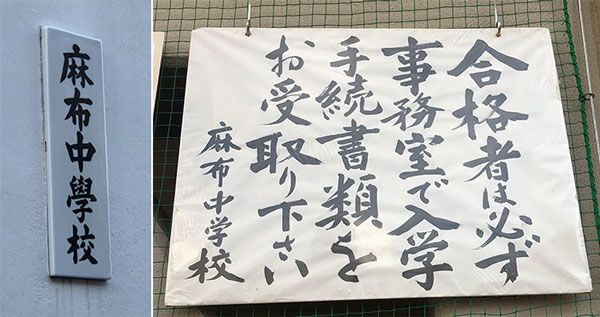 麻布中學校
合格者は必ず
事務室で入学
手続書類を
お受取り下さい
麻布中学校